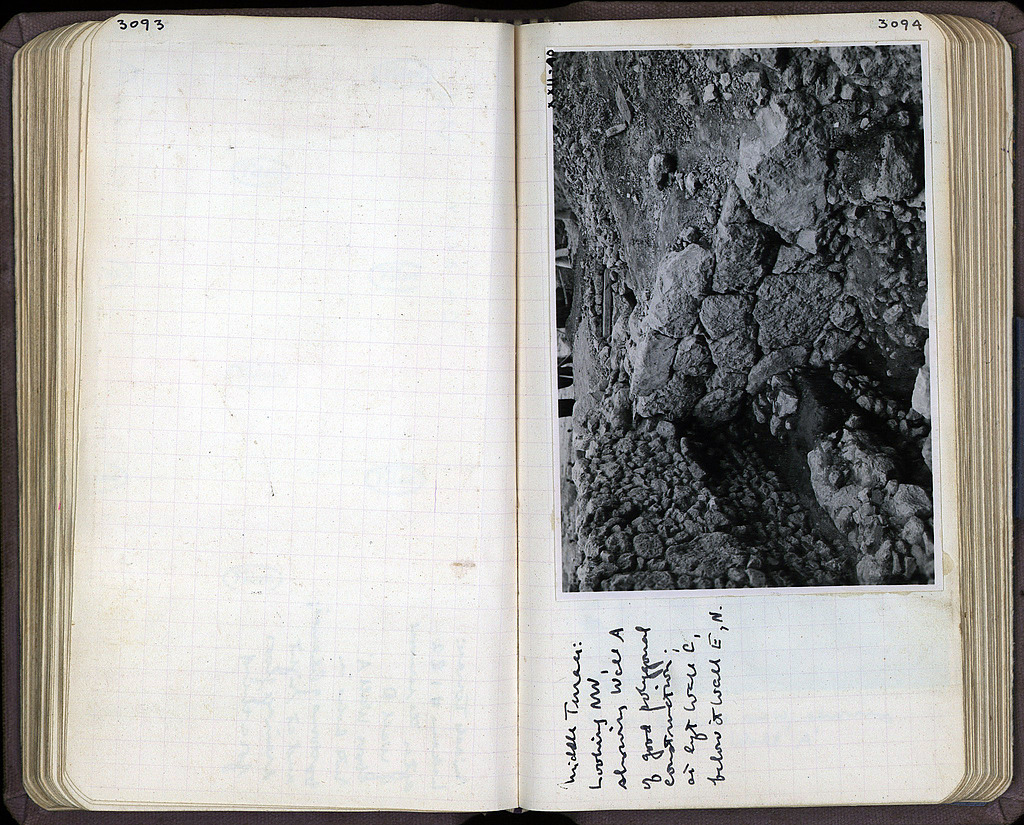 3093
3094
Middle Terrace:
Looking NW,
showing Wall A
of good polygonal
construction;
at left Wall C,
below it Wall E, N.